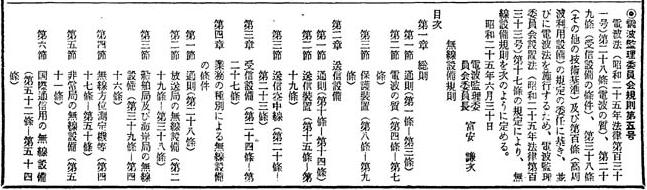 ◉電波監理委員会規則第五号
電波法（昭和二十五年法律第百三十
一号）第二十八条（電波の質）、第二十
九条（受信設備の条件）、第三十八条
（その他の技術基準）及び第百条（高周
波利用設備）の規定の委任に基き、並
びに電波法を施行するため、電波監理
委員会設置法（昭和二十五年法律第百
三十三号）第十七条の規定により、無
線設備規則を次のように定める。
昭和二十五年六月三十日
電波監理委
員会委員長　富安　謙次
無線設備規則
目次
第一章　総則
第一節　通則（第一条―第四条）
第二節　電波の質（第五条―第七
条）
第三節　保護装置（第八条―第九
条）
第二章　送信設備
第一節　通則（第十条―第十四条）
第二節　送信装置（第十五条―第
十九条）
第三節　送信空中線（第二十条―
第二十三条）
第三章　受信設備（第二十四条―第
二十七条）
第四章　業務の種別による無線設備
の条件
第一節　通則（第二十八条）
第二節　放送局の無線設備（第二
十九条―第三十八条）
第三節　船舶局及び海岸局の無線
設備（第三十九条―第四
十六条）
第四節　無線方位測定機等（第四
十七条―第五十条）
第五節　非常局の無線設備（第五
十一条）
第六節　国際通信用の無線設備
（第五十二条―第五十四
条）